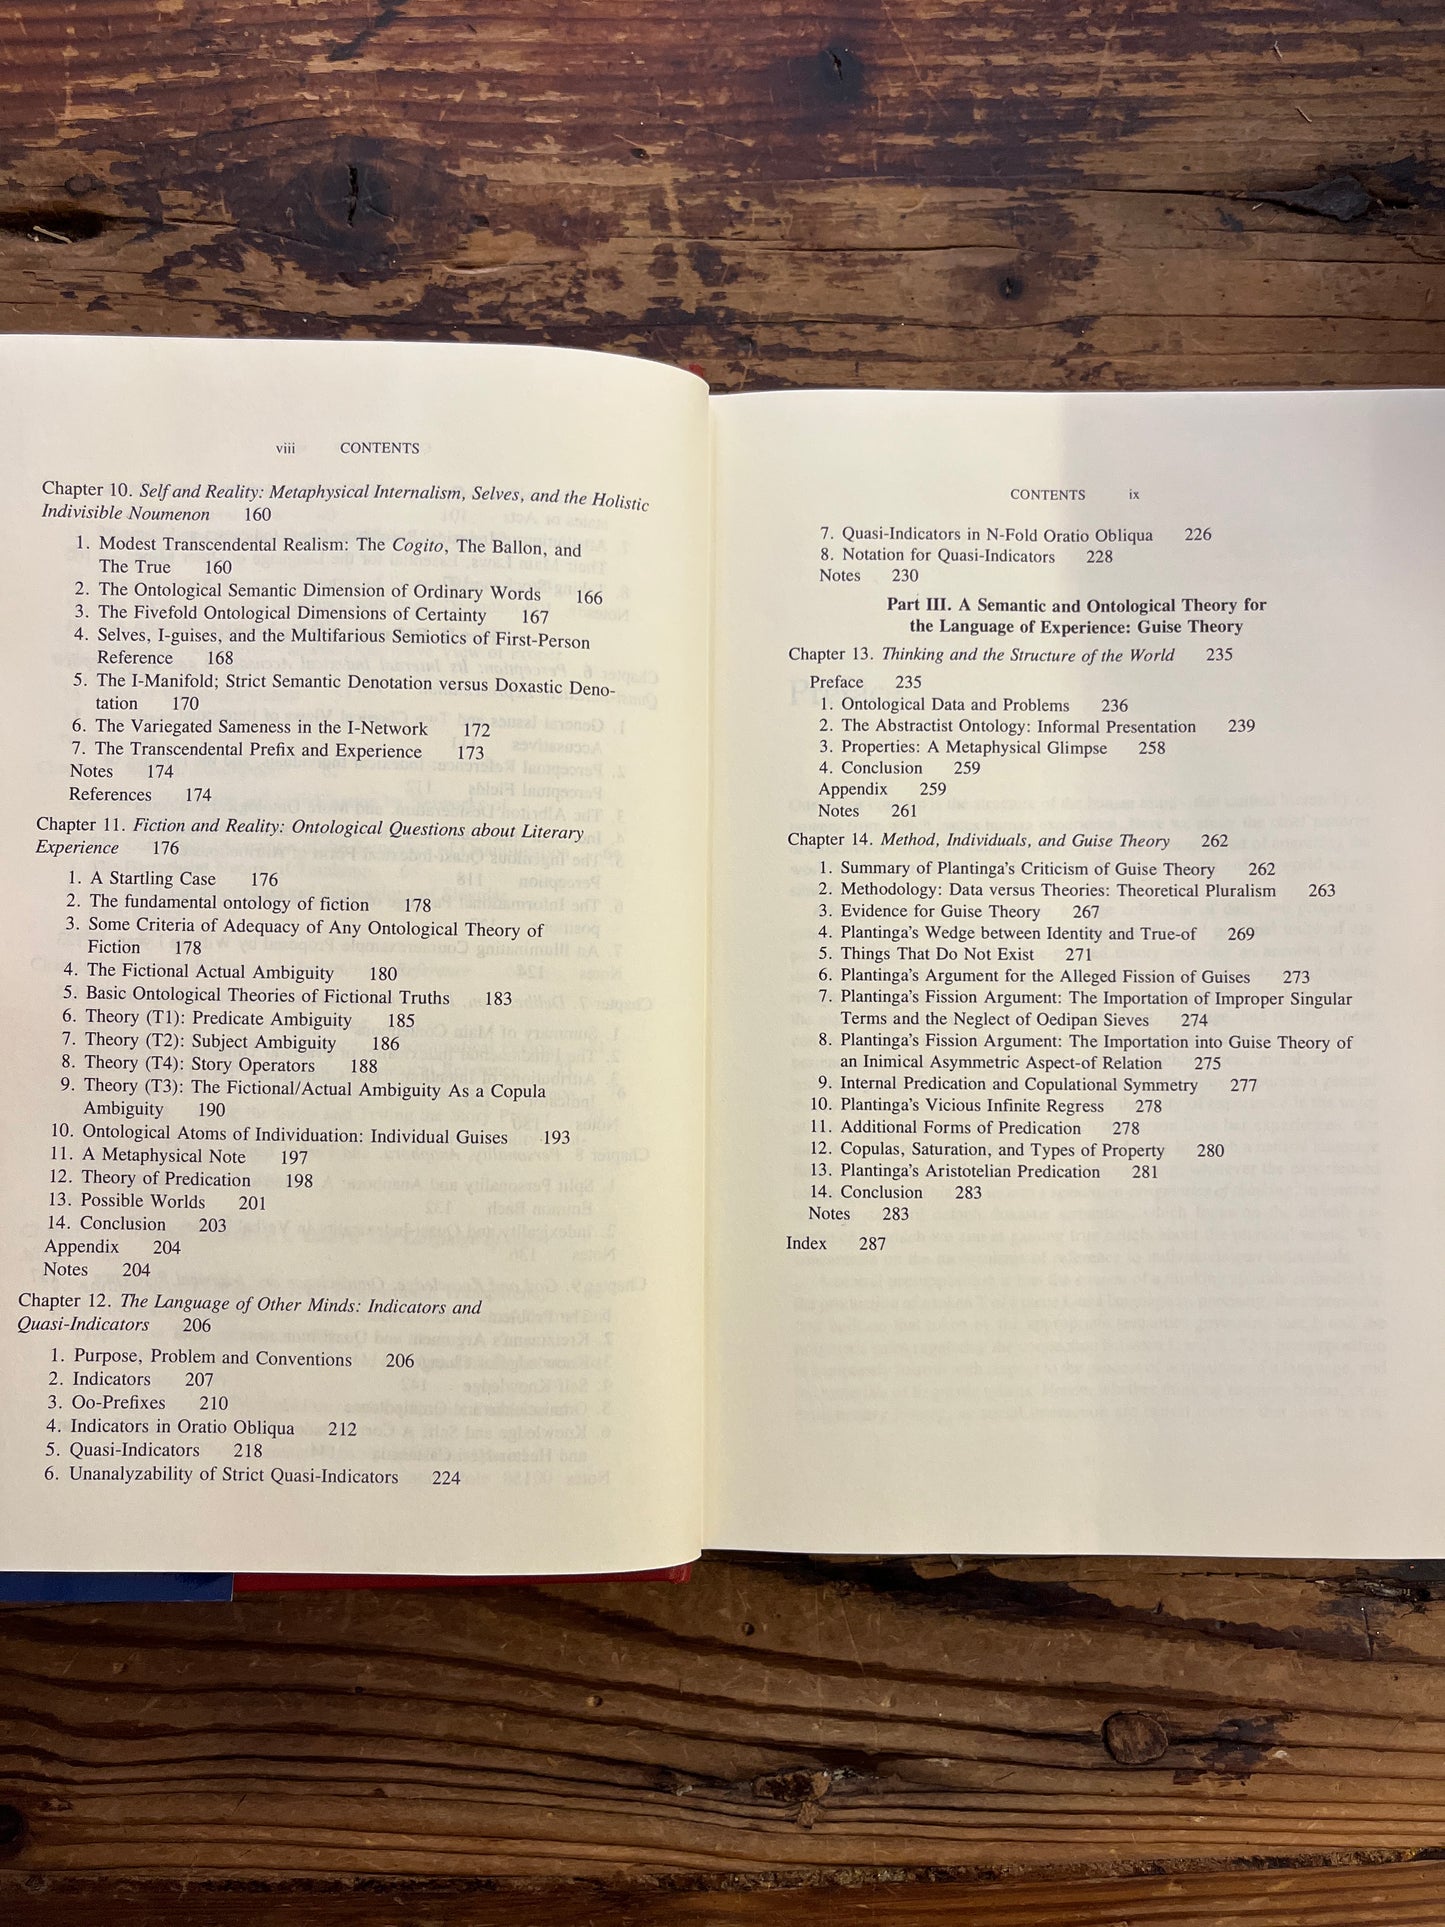 viii CONTENTS
Chapter 10. Self and Reality: Metaphysical Internalism, Selves, and the Holistic
Indivisible Noumenon 160
1. Modest Transcendental Realism: The Cogito, The Ballon, and
The True 160
2. The Ontological Semantic Dimension of Ordinary Words 166
3. The Fivefold Ontological Dimensions of Certainty 167
4. Selves, I-guises, and the Multifarious Semiotics of First-Person
Reference 168
5. The I-Manifold; Strict Semantic Denotation versus Doxastic Deno-
tation 170
6. The Variegated Sameness in the I-Network 172
7. The Transcendental Prefix and Experience 173
Notes 174
References 174
Chapter 11. Fiction and Reality: Ontological Questions about Literary
Experience 176
1. A Startling Case 176
2. The fundamental ontology of fiction 178
3. Some Criteria of Adequacy of Any Ontological Theory of
Fiction 178
4. The Fictional Actual Ambiguity 180
5. Basic Ontological Theories of Fictional Truths 183
6. Theory (T1): Predicate Ambiguity 185
7. Theory (T2): Subject Ambiguity 186
8. Theory (T4): Story Operators 188
9. Theory (T3): The Fictional/Actual Ambiguity As a Copula
Ambiguity 190
10. Ontological Atoms of Individuation: Individual Guises 193
11. A Metaphysical Note 197
12. Theory of Predication 198
13. Possible Worlds 201
14. Conclusion 203
Appendix 204
Notes 204
Chapter 12. The Language of Other Minds: Indicators and
Quasi-Indicators 206
1. Purpose, Problem and Conventions 206
2. Indicators 207
3. Oo-Prefixes 210
4. Indicators in Oratio Obliqua 212
5. Quasi-Indicators 218
6. Unanalyzability of Strict Quasi-Indicators 224
CONTENTS ix
7. Quasi-Indicators in N-Fold Oratio Obliqua 226
8. Notation for Quasi-Indicators 228
Notes 230
Part III. A Semantic and Ontological Theory for
the Language of Experience: Guise Theory
Chapter 13. Thinking and the Structure of the World 235
Preface 235
1. Ontological Data and Problems 236
2. The Abstractist Ontology: Informal Presentation 239
3. Properties: A Metaphysical Glimpse 258
4. Conclusion 259
Appendix 259
Notes 261
Chapter 14. Method, Individuals, and Guise Theory 262
1. Summary of Plantinga's Criticism of Guise Theory 262
2. Methodology: Data versus Theories: Theoretical Pluralism 263
3. Evidence for Guise Theory 267
4. Plantinga's Wedge between Identity and True-of 269
5. Things That Do Not Exist 271
6. Plantinga's Argument for the Alleged Fission of Guises 273
7. Plantinga's Fission Argument: The Importation of Improper Singular
Terms and the Neglect of Oedipan Sieves 274
8. Plantinga's Fission Argument: The Importation into Guise Theory of
an Inimical Asymmetric Aspect-of Relation 275
9. Internal Predication and Copulational Symmetry 277
10. Plantinga's Vicious Infinite Regress 278
11. Additional Forms of Predication 278
12. Copulas, Saturation, and Types of Property 280
13. Plantinga's Aristotelian Predication 281
14. Conclusion 283
Notes 283
Index 287